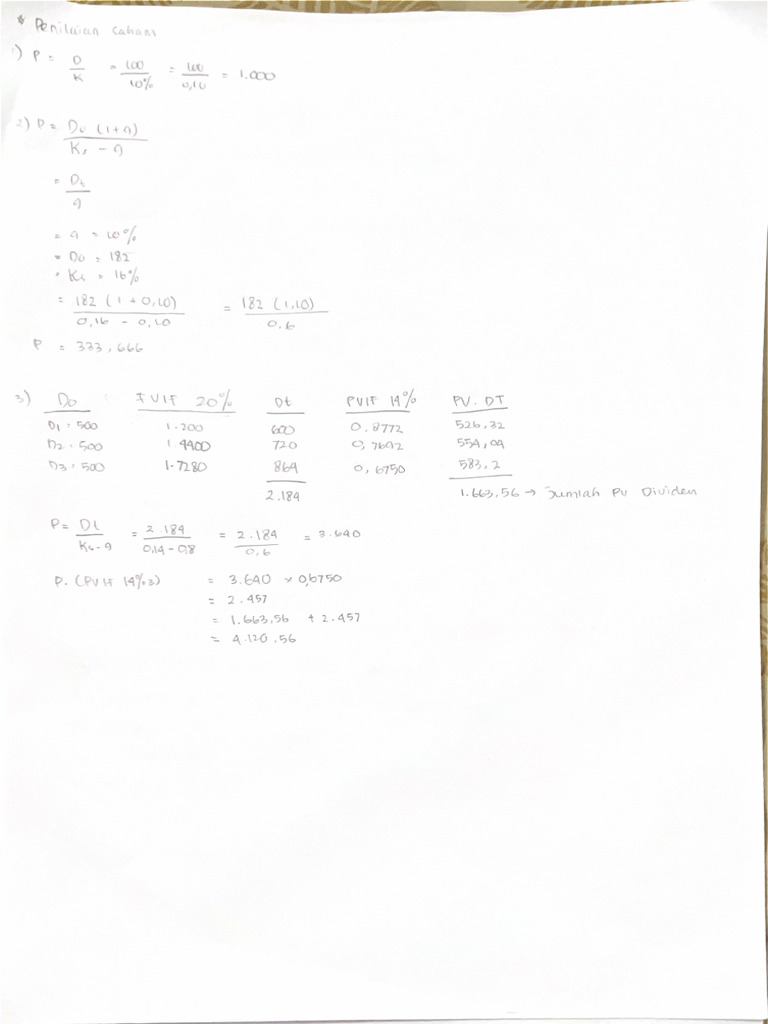 * Penilaian Saham
1) P = D/K = 100/10% = 100/0,10 = 1.000
2) P = Do (1+g) / Ks - g
= Dt / g
= g = 10%
= Do = 182
= Ks = 16%
= 182 (1 + 0,10) / 0,16 - 0,10 = 182 (1,10) / 0.6
P = 333,666
3) Do FVIF 20% Dt PVIF 14% PV. DT
D1 = 500 1.200 600 0.8772 526,32
D2 = 500 1.4400 720 0,7692 554,04
D3 = 500 1.7280 864 0,6750 583,2
2.184 1.663,56 → Jumlah PV Dividen
P = Dt / Ks-g = 2.184 / 0,14-0,8 = 2.184 / 0,6 = 3.640
P. (PVIF 14%,3) = 3.640 x 0,6750
= 2.457
= 1.663,56 + 2.457
= 4.120,56